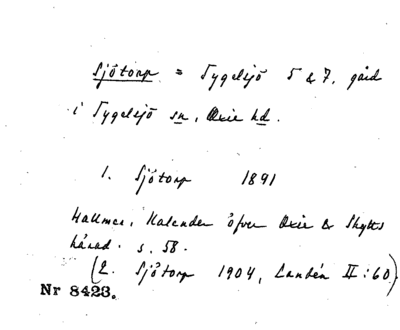 Sjötorp = Tygelsjö 5 & 7, gård
i Tygelsjö sn, Oxie hd.
1. Sjötorp 1891
Hallmer, Kalender öfver Oxie & Skytts
härad. s. 58.
(2. Sjötorp 1904, Landén II:60)
Nr 8423.